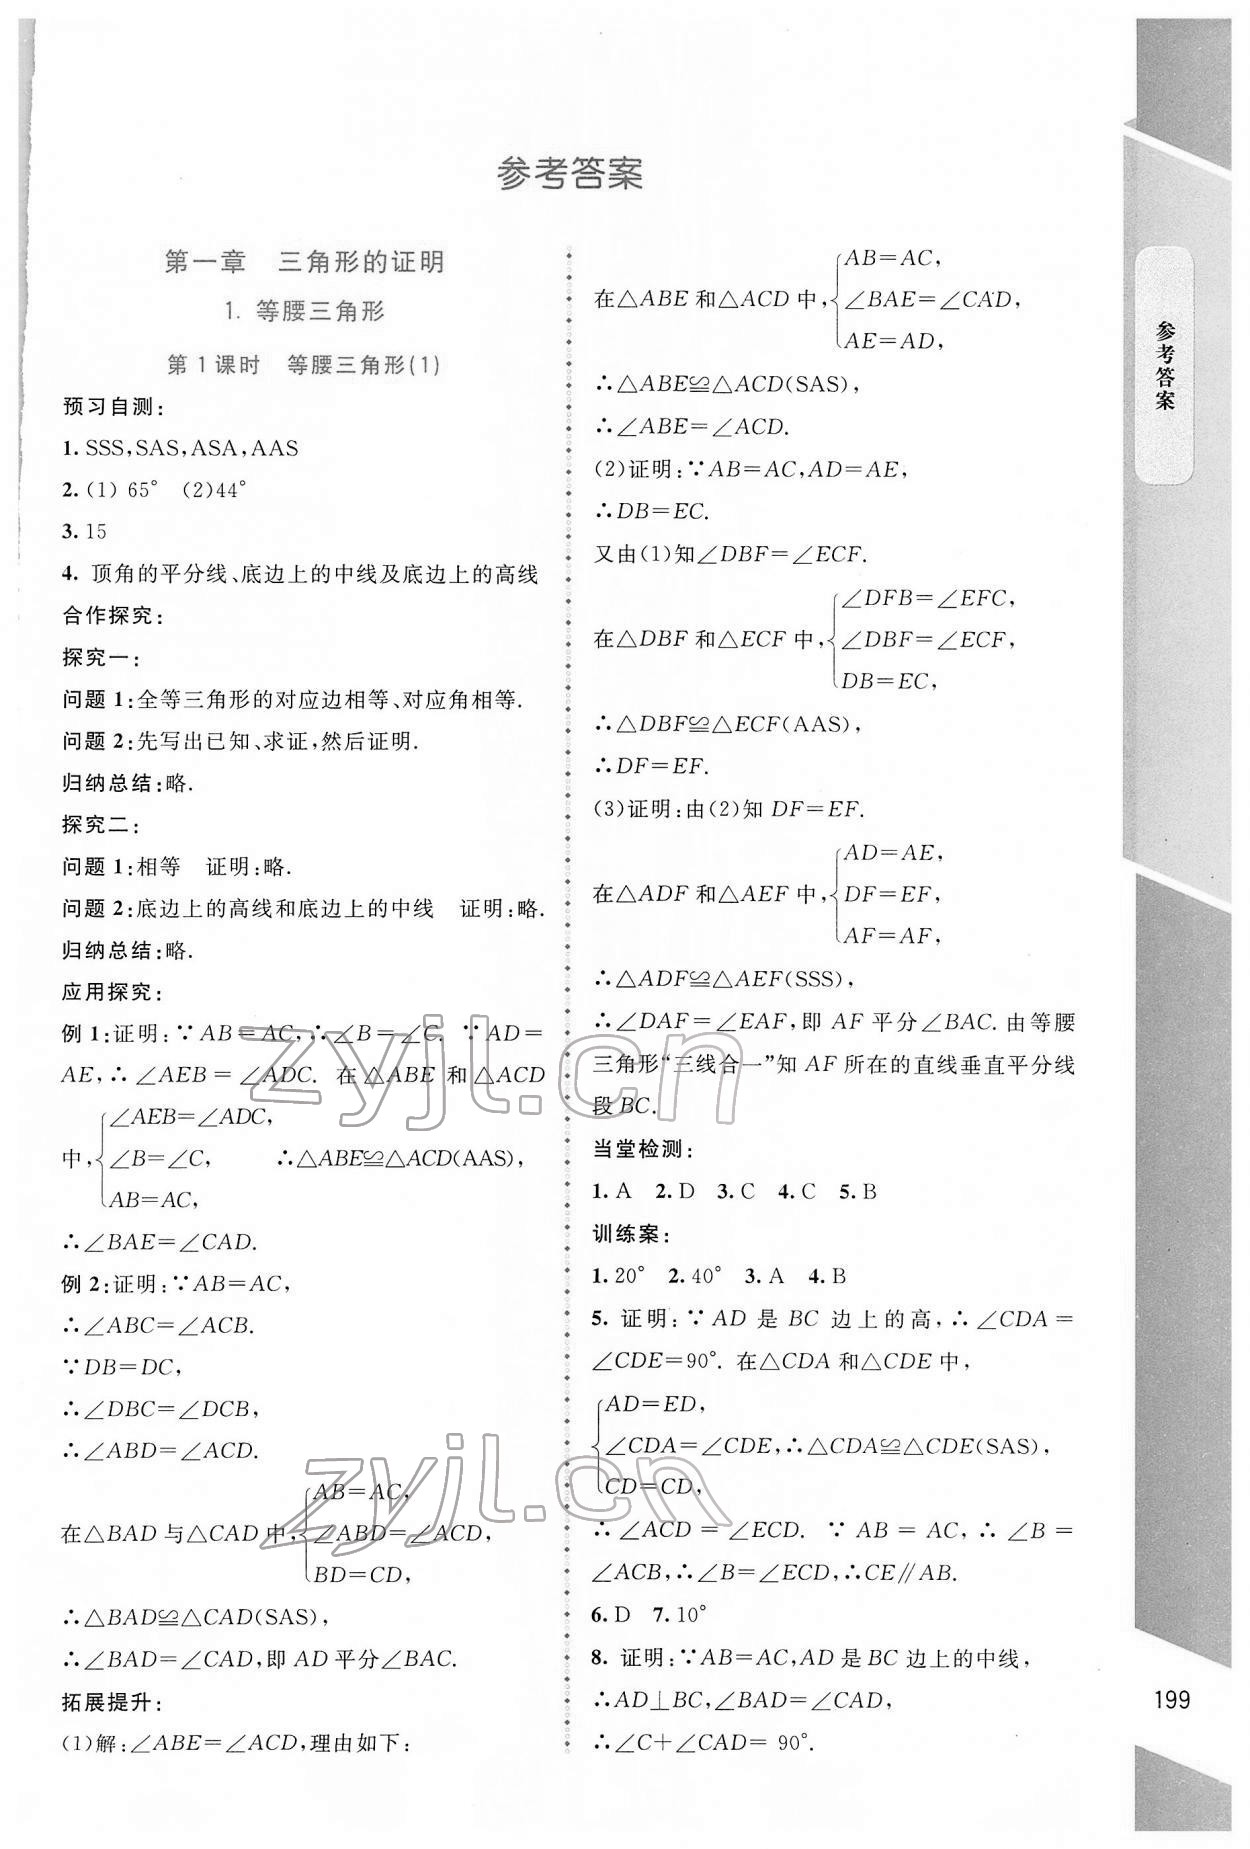 参考答案
第一章　三角形的证明
1. 等腰三角形
第1课时　等腰三角形(1)
预习自测:
1. SSS,SAS,ASA,AAS
2. (1) 65°　(2)44°
3. 15
4. 顶角的平分线、底边上的中线及底边上的高线
合作探究:
探究一:
问题 1:全等三角形的对应边相等、对应角相等.
问题 2:先写出已知、求证,然后证明.
归纳总结:略.
探究二:
问题 1:相等　证明:略.
问题 2:底边上的高线和底边上的中线　证明:略.
归纳总结:略.
应用探究:
例 1:证明:∵AB=AC,∴∠B=∠C. ∵AD=
AE,∴∠AEB=∠ADC. 在△ABE 和△ACD
∠AEB=∠ADC,
中, ∠B=∠C,　∴△ABE≌△ACD(AAS),
AB=AC,
∴∠BAE=∠CAD.
例 2:证明:∵AB=AC,
∴∠ABC=∠ACB.
∵DB=DC,
∴∠DBC=∠DCB,
∴∠ABD=∠ACD.
AB=AC,
在△BAD 与△CAD 中, ∠ABD=∠ACD,
BD=CD,
∴△BAD≌△CAD(SAS),
∴∠BAD=∠CAD,即 AD 平分∠BAC.
拓展提升:
(1)解:∠ABE=∠ACD,理由如下:
AB=AC,
在△ABE 和△ACD 中, ∠BAE=∠CAD,
AE=AD,
∴△ABE≌△ACD(SAS),
∴∠ABE=∠ACD.
(2)证明:∵AB=AC,AD=AE,
∴DB=EC.
又由(1)知∠DBF=∠ECF.
∠DFB=∠EFC,
在△DBF 和△ECF 中, ∠DBF=∠ECF,
DB=EC,
∴△DBF≌△ECF(AAS),
∴DF=EF.
(3)证明:由(2)知 DF=EF.
AD=AE,
在△ADF 和△AEF 中, DF=EF,
AF=AF,
∴△ADF≌△AEF(SSS),
∴∠DAF=∠EAF,即 AF 平分∠BAC. 由等腰
三角形“三线合一”知 AF 所在的直线垂直平分线
段 BC.
当堂检测:
1. A　2. D　3. C　4. C　5. B
训练案:
1. 20°　2. 40°　3. A　4. B
5. 证明:∵AD 是 BC 边上的高,∴∠CDA=
∠CDE=90°. 在△CDA 和△CDE 中,
AD=ED,
∠CDA=∠CDE,∴△CDA≌△CDE(SAS),
CD=CD,
∴∠ACD=∠ECD. ∵AB=AC,∴∠B=
∠ACB,∴∠B=∠ECD,∴CE∥AB.
6. D　7. 10°
8. 证明:∵AB=AC,AD 是 BC 边上的中线,
∴AD⊥BC,∠BAD=∠CAD,
∴∠C+∠CAD= 90°.
参考答案
199
zyjl.cn
zyjl.cn